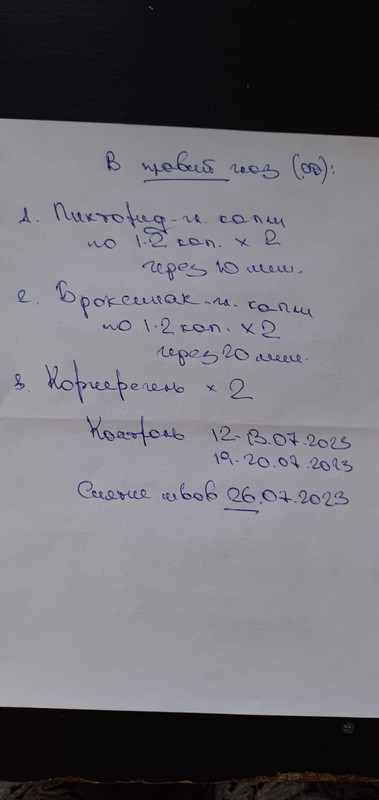 В правый глаз (OD):
1. Пикторид-гл. капли
по 1-2 кап. x 2
через 10 мин.
2. Броксинак-гл. капли
по 1-2 кап. x 2
через 20 мин.
3. Корнерегель x 2
Контроль 12-13.07.2023
19-20.07.2023
Снятие швов 26.07.2023